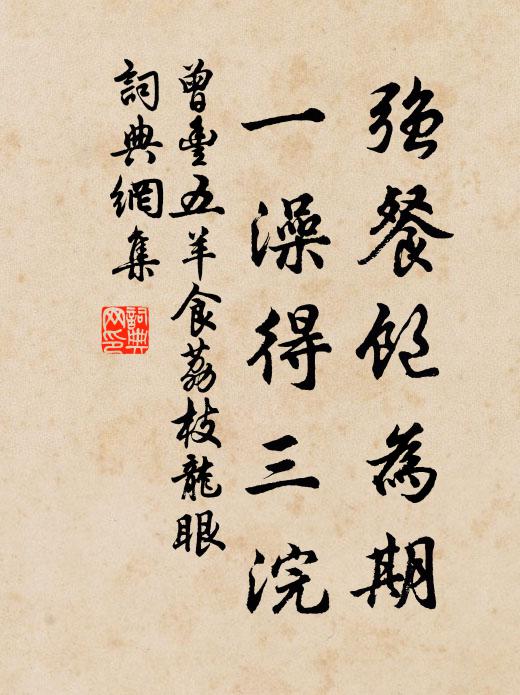 强餐飽為期
一澡得三浣
曾豐五羊食荔枝龍眼
詞典網集
詞典网印